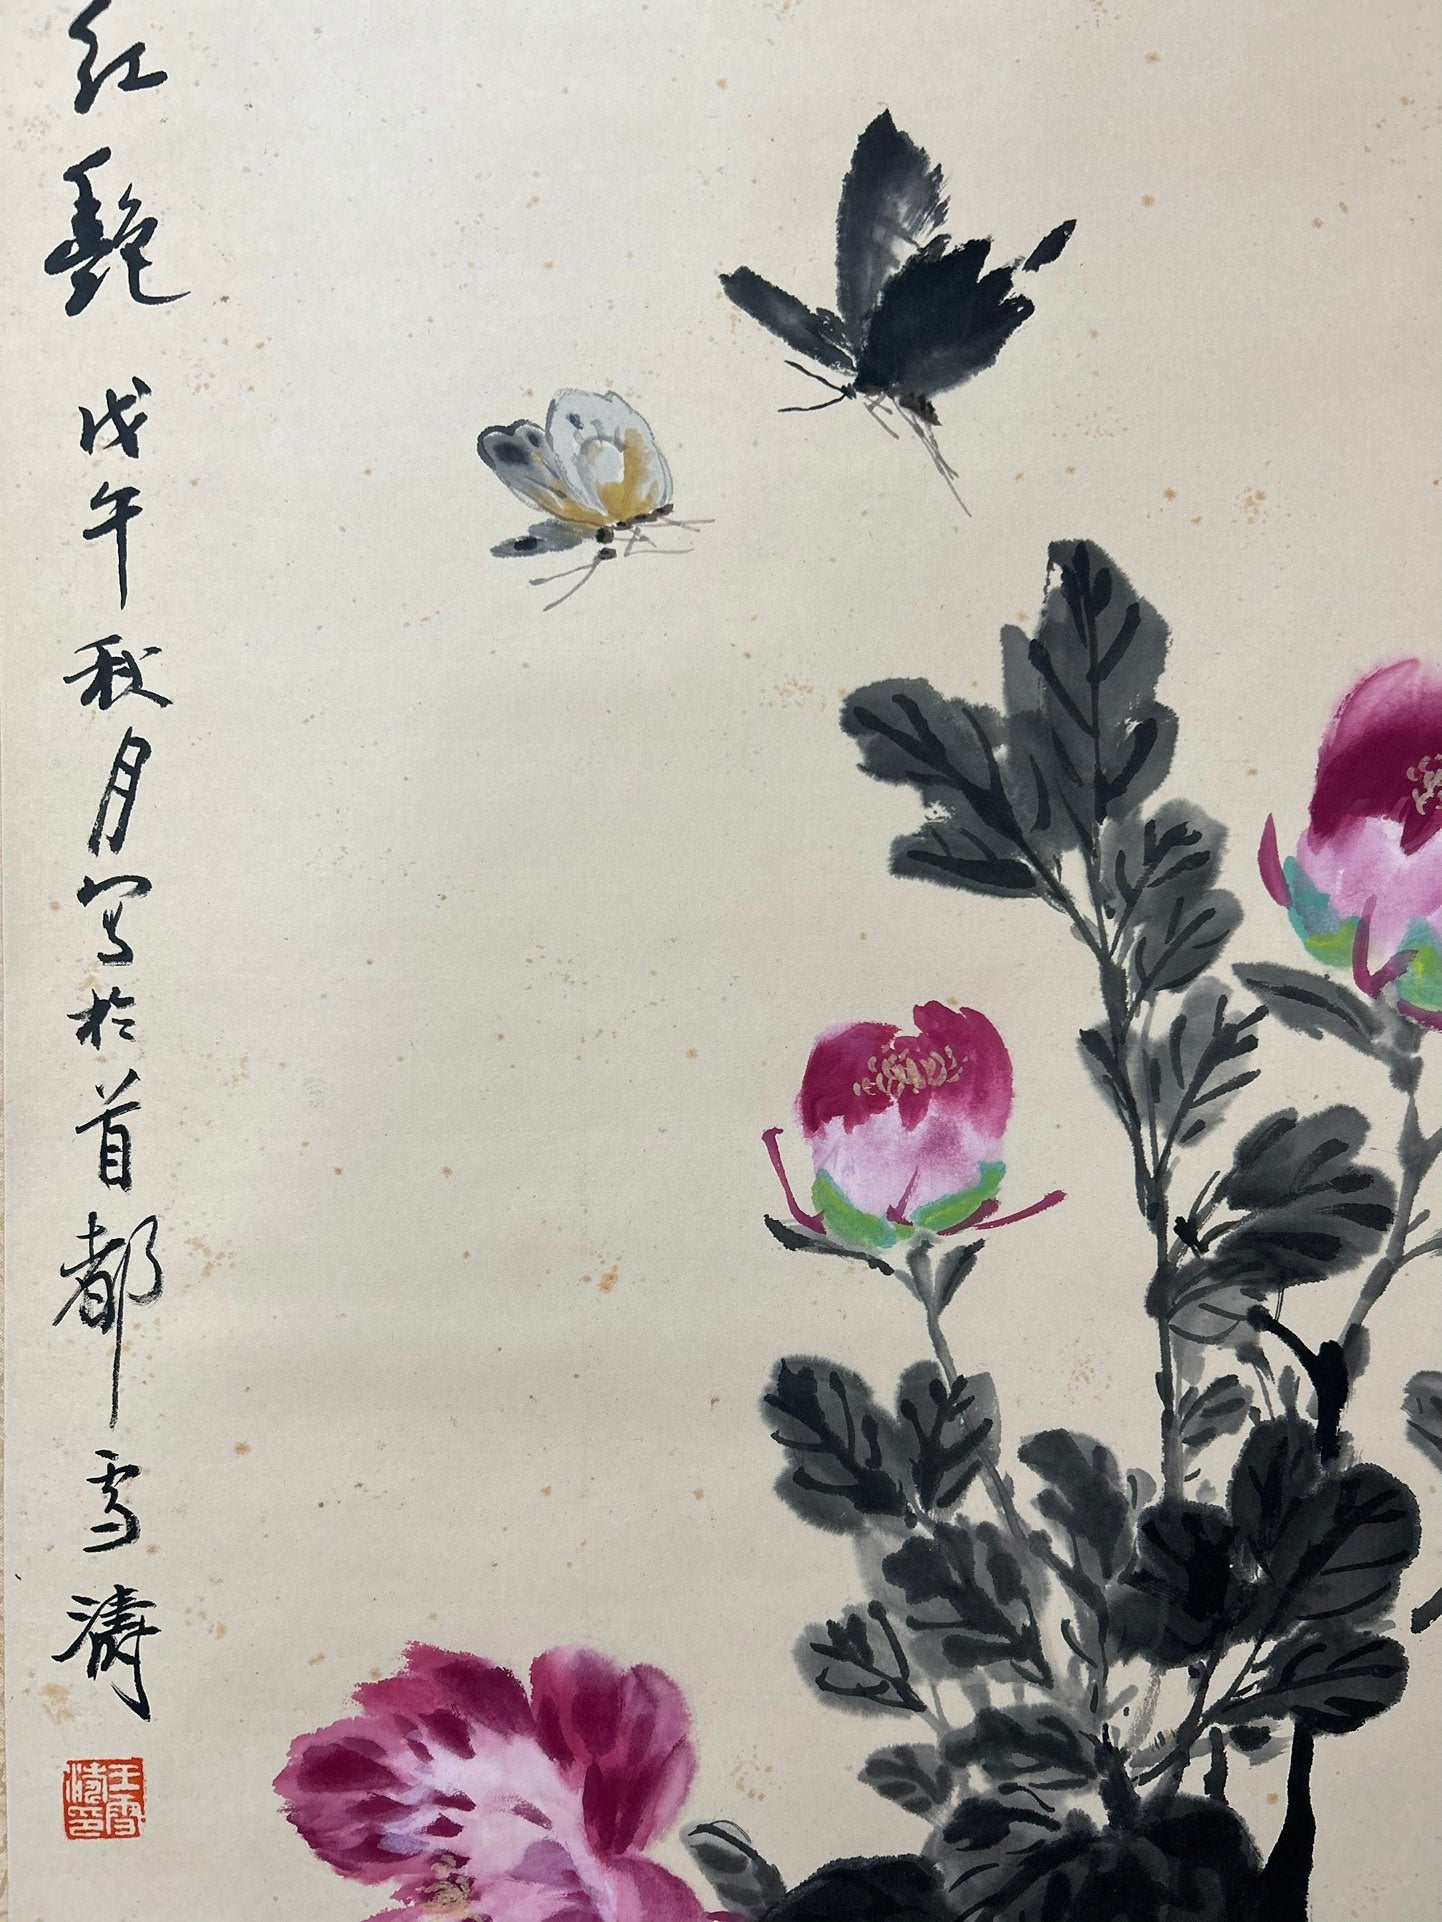 红艳戊午秋月写於首都雪涛
王雪涛印